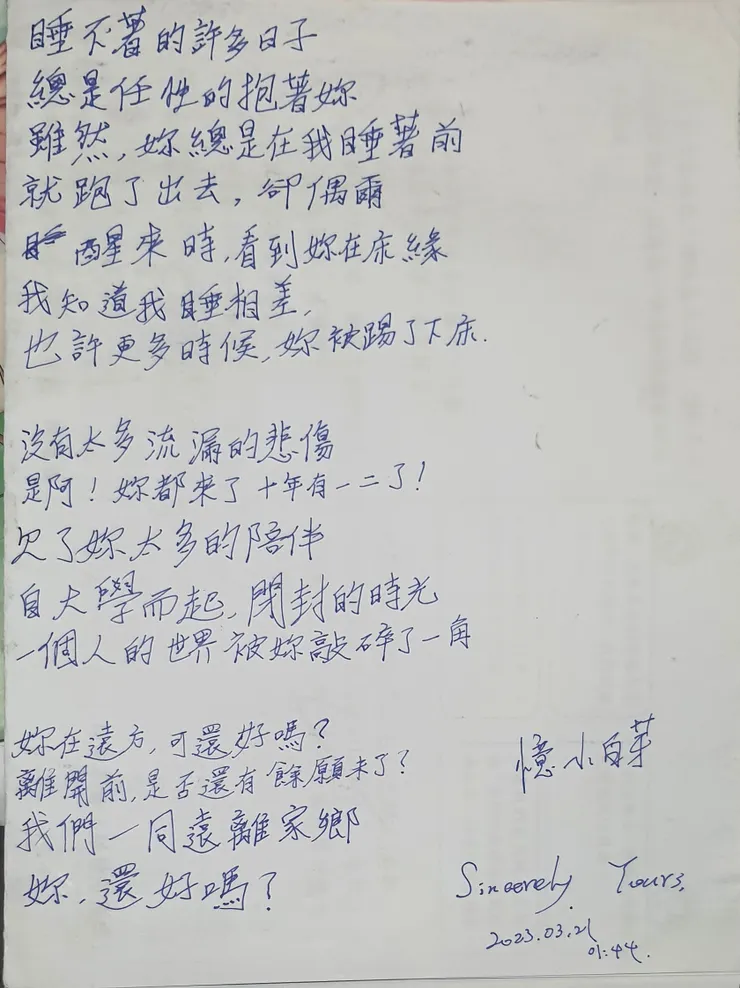 睡不著的許多日子
總是任性的抱著妳
雖然,妳總是在我睡著前
就跑了出去,卻偶爾
醒來時,看到妳在床緣
我知道我睡相差,
也許更多時候,妳被踢了下床.
沒有太多流漏的悲傷
是阿!妳都來了十年有一二了!
欠了妳太多的陪伴
自大學而起,閉封的時光
一個人的世界被妳敲碎了一角
妳在遠方,可還好嗎?
離開前,是否還有餘願未了?
我們一同遠離家鄉
妳,還好嗎?
憶小白芽
Sincerely Yours,
2023.03.21
01:44.